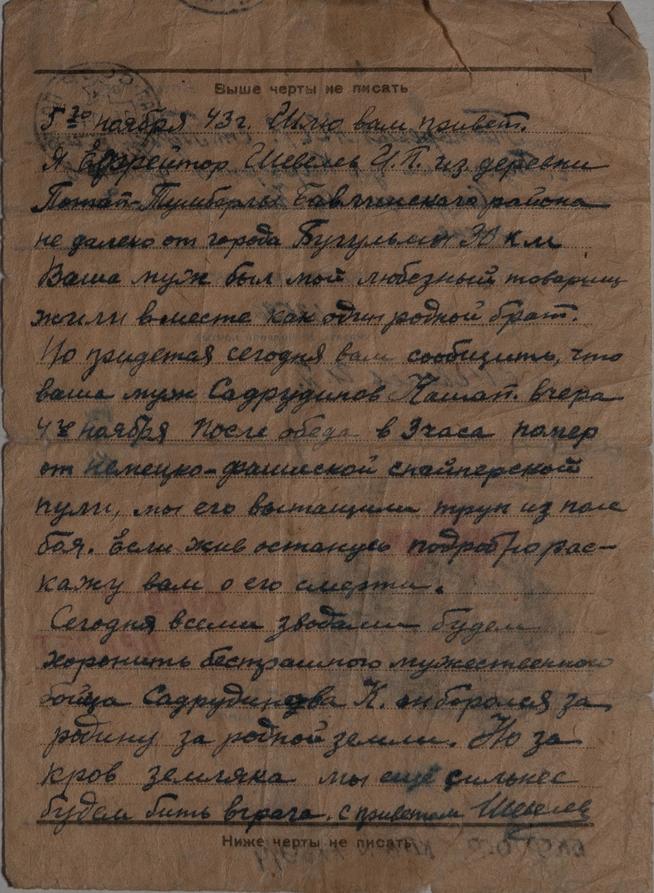 Выше черты не писать
5го ноября 43 г. Шлю вам привет.
Я Ефрейтор Шевелев И.П. из деревни
Потап-Тумбарлы Бавлинского района
не далеко от города Бугульмы 90 км
Ваша муж был мой любезный товарищ
жили вместе как один родной брат.
Но придется сегодня вам сообщить, что
ваша муж Садрудинов Кашап. вчера
4го ноября после обеда в 3 часа помер
от немецко-фашиской снайперской
пули, мы его вытащили труп из поле
боя. Если жив останусь подробно рас-
кажу вам о его смерти.
Сегодня всеми зводами будем
хоронить бестрашного мужественного
бойца Садрудинова К. он боролся за
родину за родной земли. Но за
кров земляка мы еще сильнее
будем бить врага. с приветом Шевелев
Ниже черты не писать